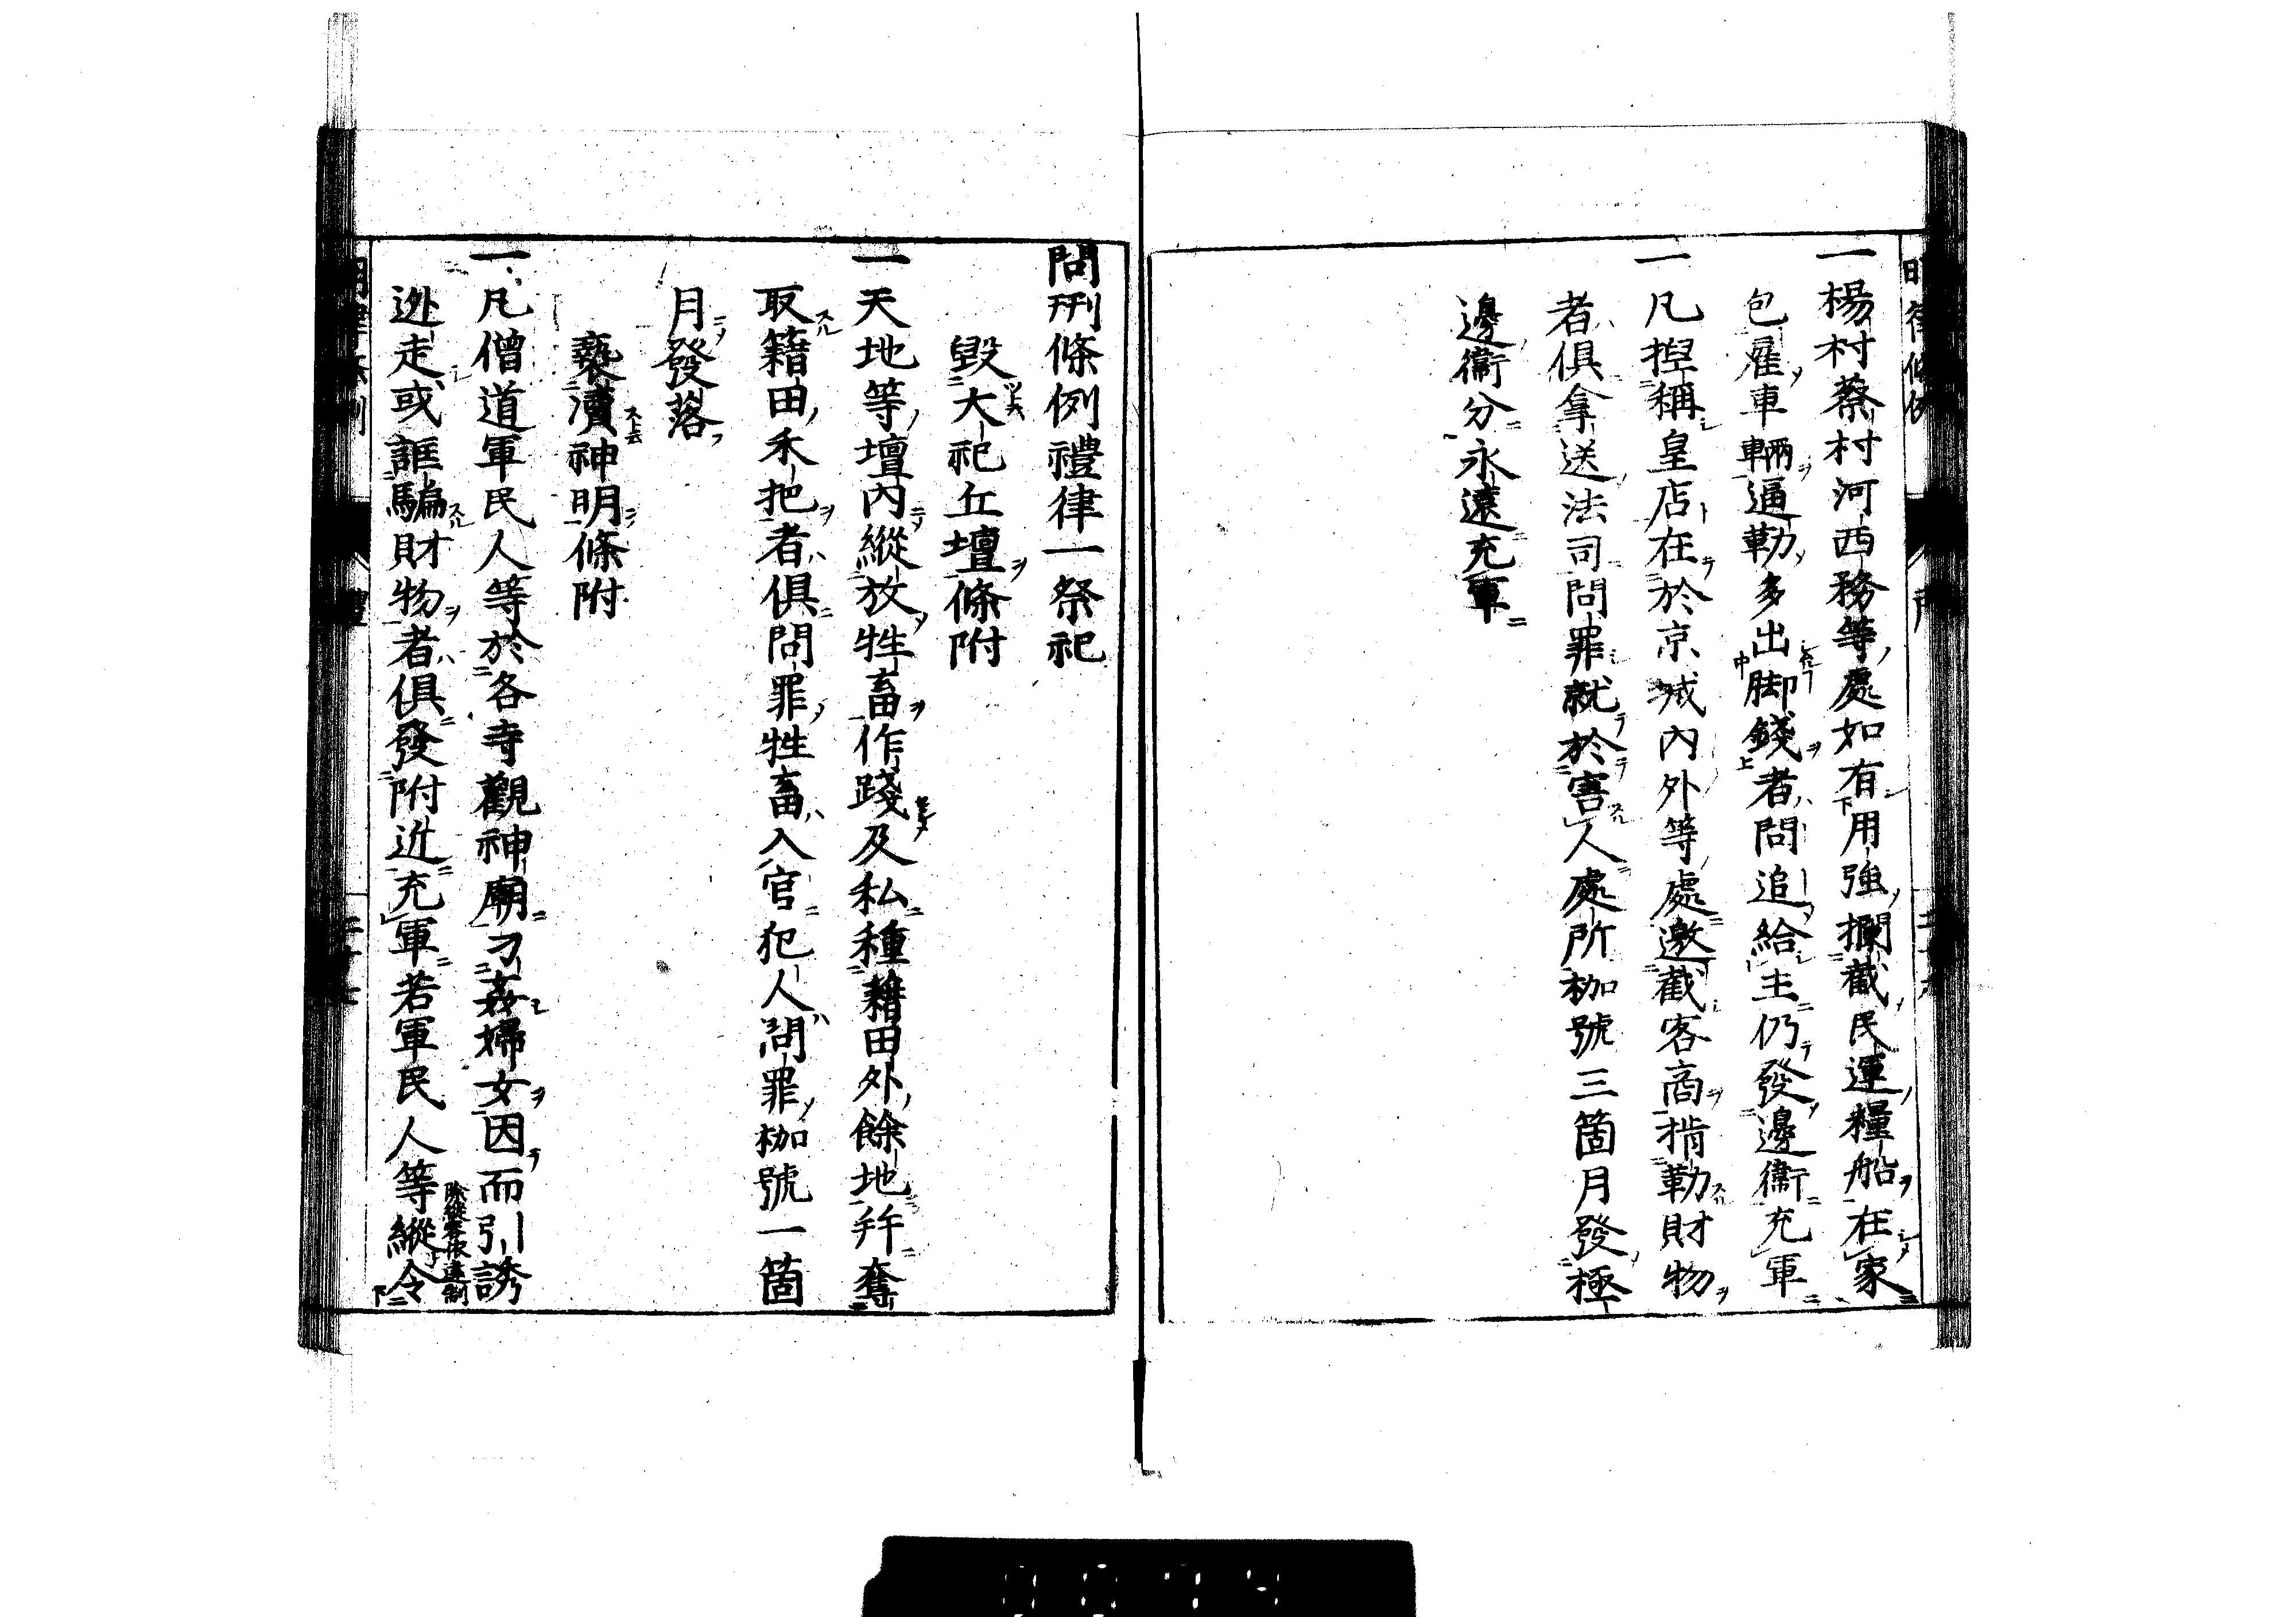 一楊村蔡村河西務等處如有用強攔截民運糧船在家
包雇車輛逼勒多出脚錢者問追給主仍發邊衞充軍
一凡揑稱皇店在於京城內外等處邀截客商掯勒財物
者俱拿送法司問罪就於害人處所枷號三箇月發極
邊衞分永遠充軍
問刑條例禮律一祭祀
毀大祀丘壇條附
一天地等壇內縱放牲畜作踐及私種藉田外餘地并奪
取籍田禾把者俱問罪牲畜入官犯人問罪枷號一箇
月發落
褻瀆神明條附
一凡僧道軍民人等於各寺觀神廟刁姦婦女因而引誘
逃走或誆騙財物者俱發附近充軍若軍民人等縱令